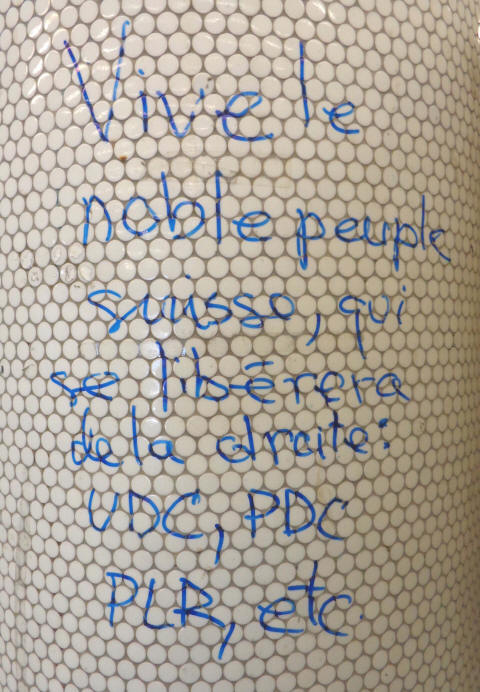 Vive le
noble peuple
suisse, qui
se libērera
de la droite:
UDC, PDC
PLR, etc.